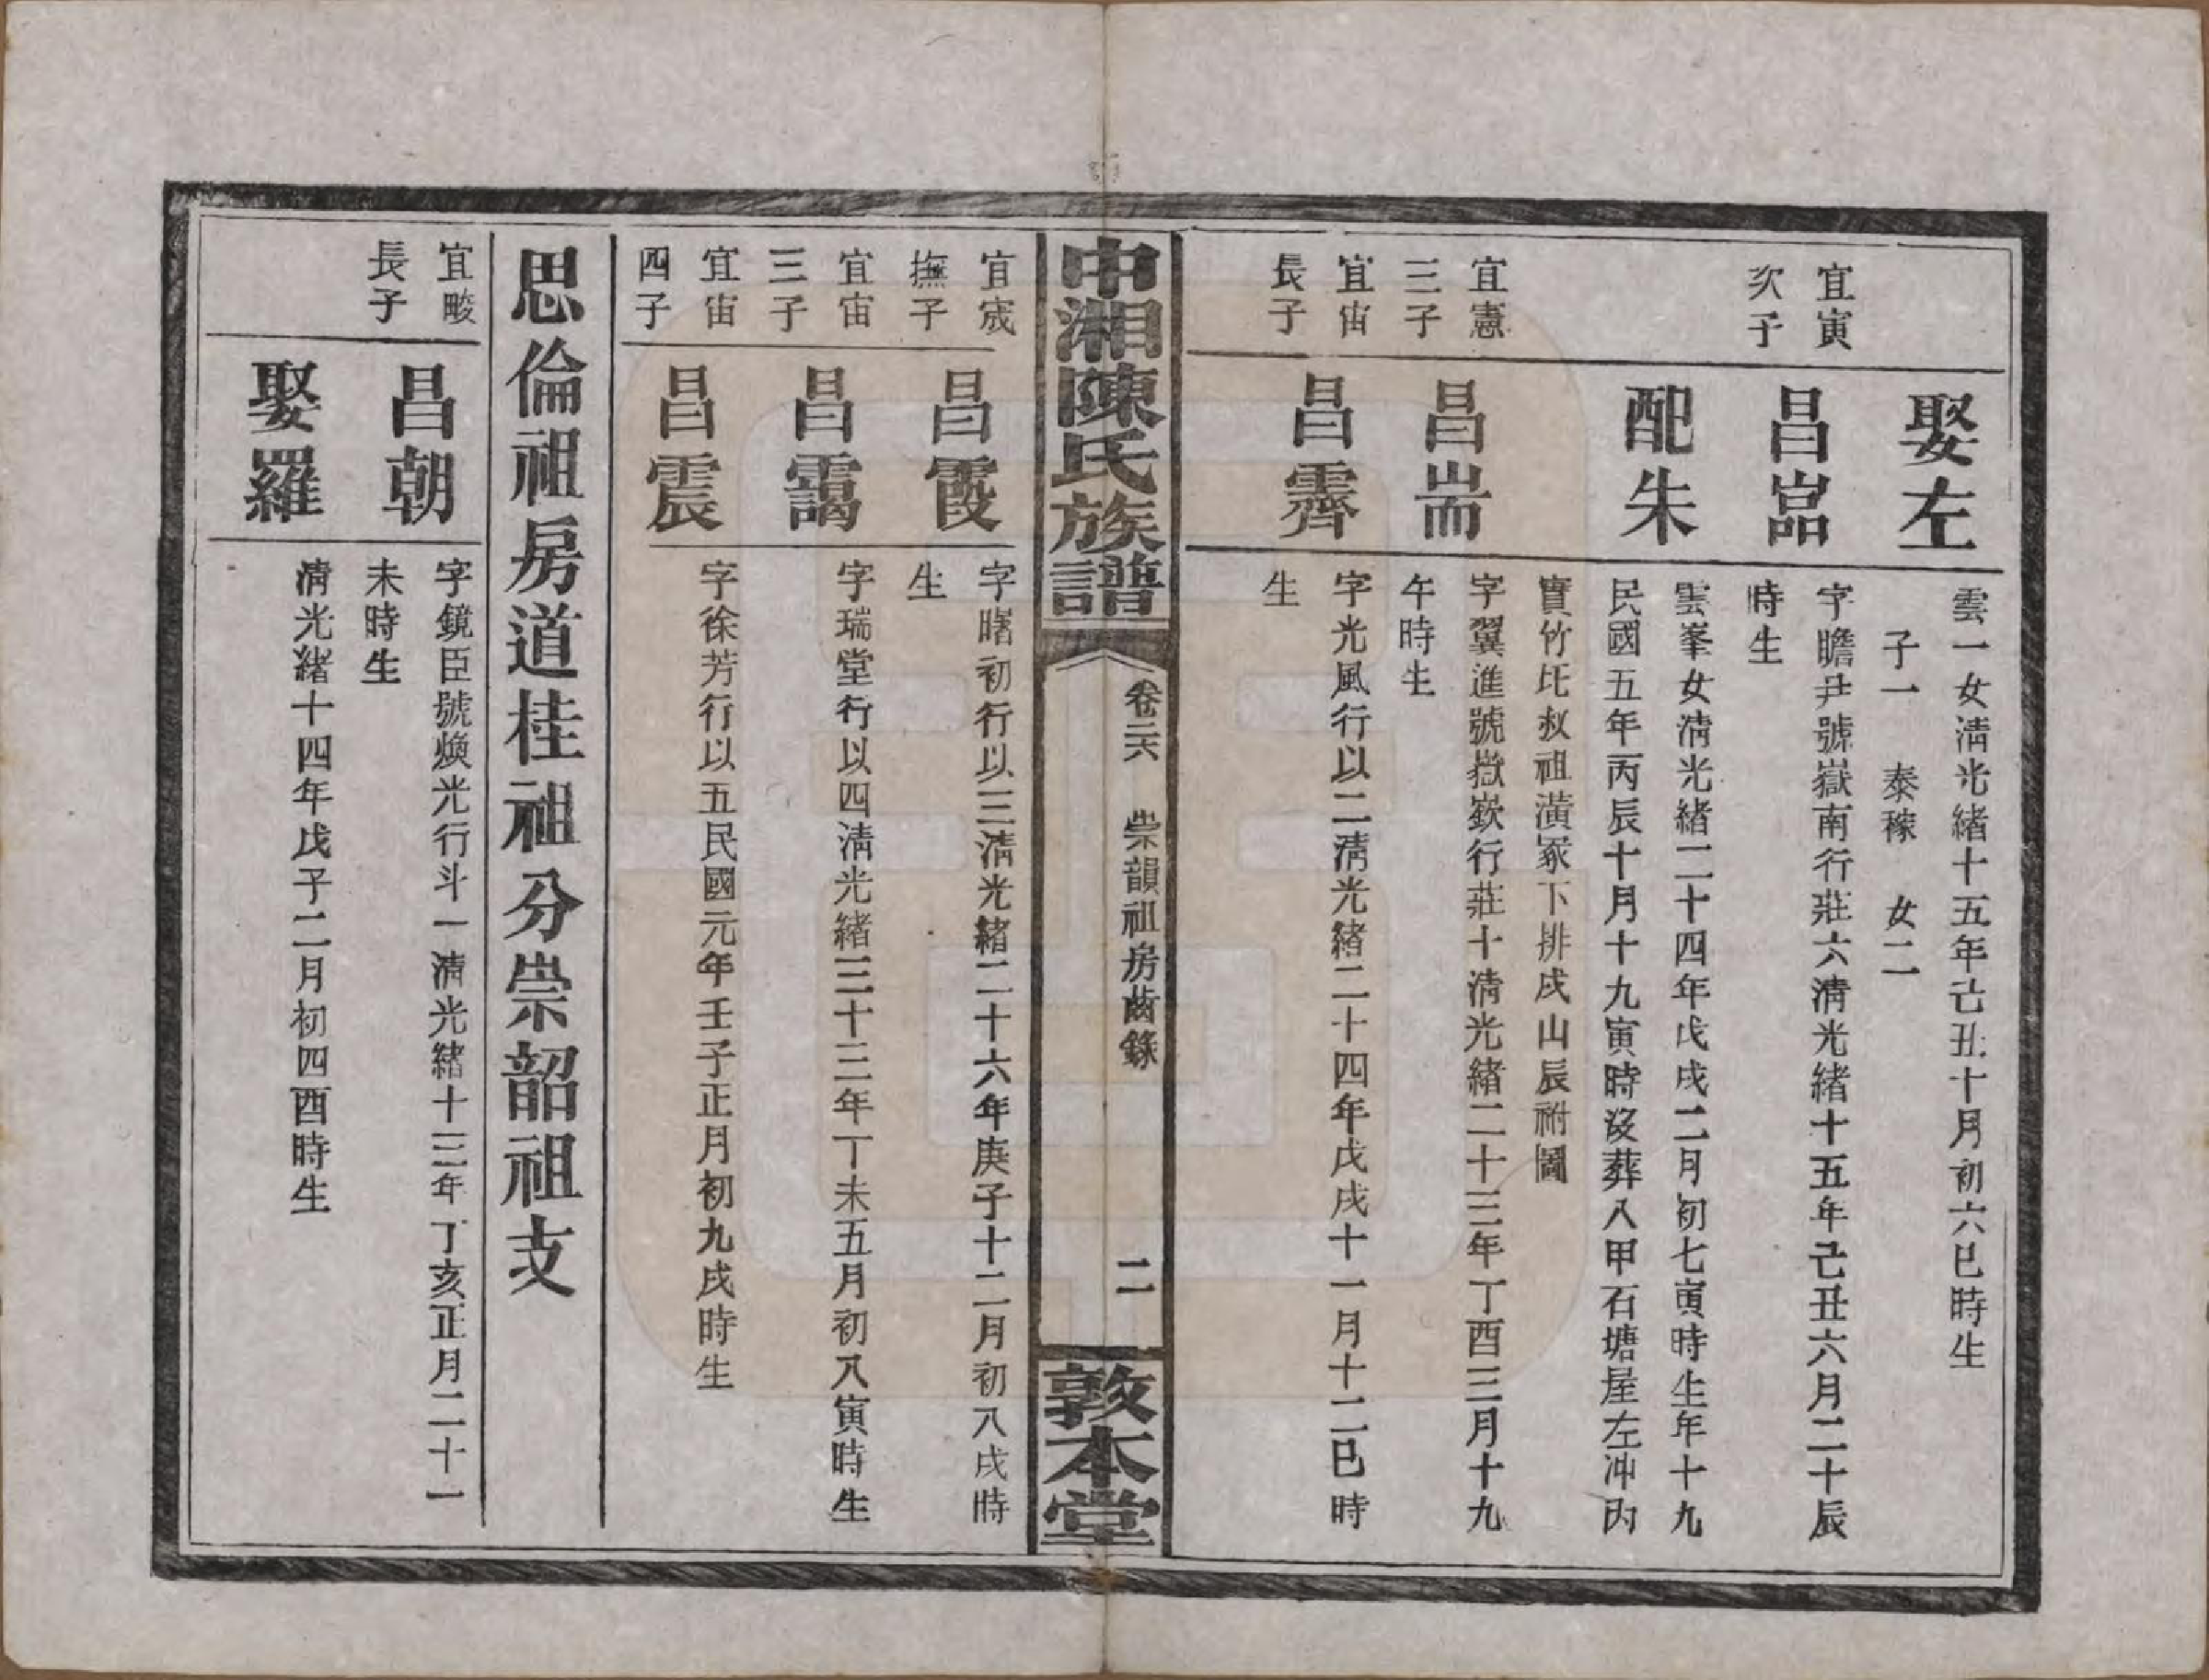 娶左
雲一女清光緒十五年己丑十月初六巳時生
子一　泰稼　女二
宜寅
次子
昌嵓
字瞻尹號嶽南行莊六清光緒十五年己丑六月二十辰
時生
配朱
雲峯女清光緒二十四年戊戌二月初七寅時生年十九
民國五年丙辰十月十九寅時沒葬八甲石塘屋左冲內
寶竹圫叔祖潢冢下排戌山辰祔圖
宜憲
三子
昌耑
字翼進號嶽嶔行莊十清光緒二十三年丁酉三月十九
午時生
宜宙
長子
昌霽
字光風行以二清光緒二十四年戊戌十一月十二巳時
生
中湘陳氏族譜
卷二六　崇韻祖房齒錄
二
敦本堂
宜宬
撫子
昌霞
字曙初行以三清光緒二十六年庚子十二月初八戌時
生
宜宙
三子
昌靄
字瑞堂行以四清光緒三十三年丁未五月初八寅時生
宜宙
四子
昌震
字徐芳行以五民國元年壬子正月初九戌時生
思倫祖房道桂祖分崇韶祖支
宜畯
長子
昌朝
字鏡臣號煥光行斗一清光緒十三年丁亥正月二十一
未時生
娶羅
清光緒十四年戊子二月初四酉時生